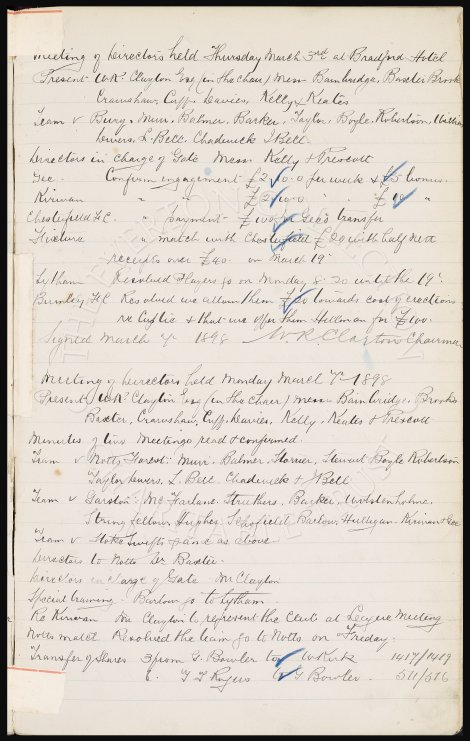 Meeting of Directors held Thursday March 3rd at Bradford Hotel
Present W.R. Clayton Esq (in the chair) Messrs Bainbridge, Baxter Brooks
Crawshaw, Cuff, Davies, Kelly & Keates
Team v Bury. Muir, Balmer, Barker, Taylor, Boyle, Robertson,
Divers, L. Bell. Chadwick J Bell.
Directors in charge of Gate Messrs Kelly & Prescott
Gee. Confirm engagement £2.10.0 per week & £5 bonus.
Kirwan " " £2.10.0 " £10 "
Chesterfield F.C. " payment £100 for Gee's transfer
Fixture " match with Chesterfield £20 with half nett
receipts over £40. on March 19th
Lytham Resolved Players go on Monday 8.20 until the 19th.
Burnley F.C. Resolved we allow them towards cost of erections
re Cup tie & that we offer them Hillman for £100.
Signed March 7th 1898 W.R. Clayton Chairman
Meeting of Directors held Monday March 7th 1898
Present W.R. Clayton Esq (in the Chair) Messrs Bainbridge, Brooks
Baxter, Crawshaw, Cuff, Davies, Kelly, Keates & Prescott
Minutes of two Meetings read & confirmed.
Team v Notts Forest: Muir. Balmer, Storrier, Stewart Boyle Robertson
Taylor Divers, L. Bell. Chadwick & J Bell
Team v Garston: McFarlane. Struthers, Barker, Wolstenholme,
Stringfellow Hughes, Schofield, Barlow, Hulligan. Kirwan & Gee
Team v Stoke Swifts same as above
Directors to Notts Dr Baxter.
Directors in charge of Gate Mr Clayton
Special training. Barlow go to Lytham.
Re Kirwan Mr Clayton to represent the Club at League Meeting
Notts match Resolved the team go to Notts on Friday.
Transfer of Shares 3 from G. Bowler to W Kirk 1417/1419
6. " T Rogers to G Bowler. 511/516